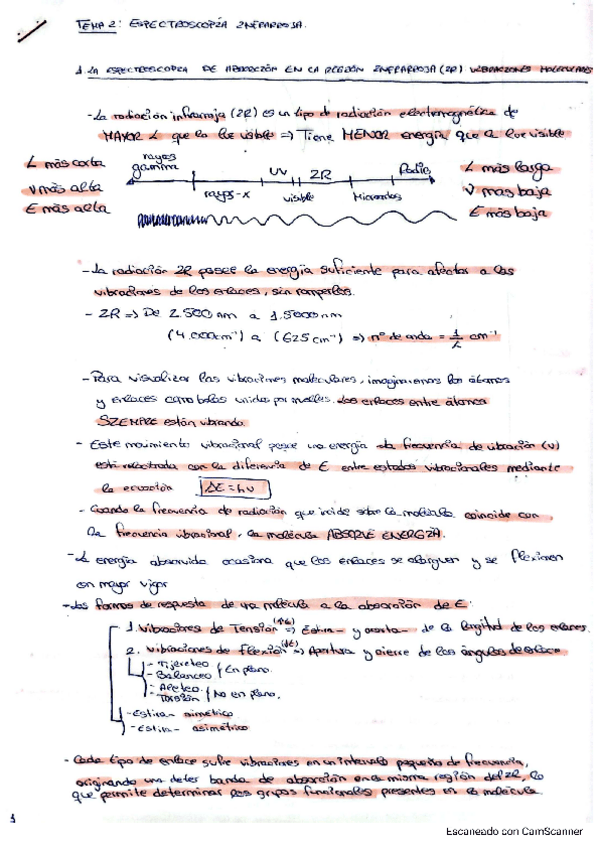 TEMA 2: ESPECTROSCOPÍA INFRARROJA.
1. LA ESPECTROSCOPIA DE ABSORCIÓN EN LA REGIÓN INFRARROJA (IR) VIBRACIONES MOLECULARES
- La radiación infrarroja (IR) es un tipo de radiación electromagnética de
MAYOR λ que la luz visible => Tiene MENOR energía que la luz visible
λ más corta
ν más alta
E más alta
rayos gamma
rayos-x
UV
visible
IR
Microondas
Radio
λ más larga
ν mas baja
E más baja
- La radiación IR posee la energía suficiente para afectar a las
vibraciones de los enlaces, sin romperlos.
- IR => De 2.500 nm a 1.5000 nm
(4.000cm⁻¹) a (625 cm⁻¹) => nº de onda = 1/λ cm⁻¹
- Para visualizar las vibraciones moleculares, imaginamos los átomos
y enlaces como bolas unidas por muelles. Los enlaces entre átomos
SIEMPRE están vibrando.
- Este movimiento vibracional posee una energía. La frecuencia de vibración (ν)
está relacionada con la diferencia de E entre estados vibracionales mediante
la ecuación ΔE = h·ν
- Cuando la frecuencia de radiación que incide sobre la molécula coincide con
la frecuencia vibracional, la molécula ABSORVE ENERGÍA.
- La energía absorvida ocasiona que los enlaces se alarguen y se flexionen
con mayor vigor
- Las formas de respuesta de una molécula a la absorción de E:
1. Vibraciones de Tensión => Estira- y acorta- de la longitud de los enlaces.
2. Vibraciones de flexión => Apertura y cierre de los ángulos de enlace
- Tijereteo
- Balanceo
/ En plano.
- Aleteo
- Torsión
/ No en plano.
- Estira- simétrico
- Estira- asimétrico
- Cada tipo de enlace sufre vibraciones en un intervalo pequeño de frecuencia,
originando una deter banda de absorción en la misma región del IR, lo
que permite determinar los grupos funcionales presentes en la molécula.
1
Escaneado con CamScanner